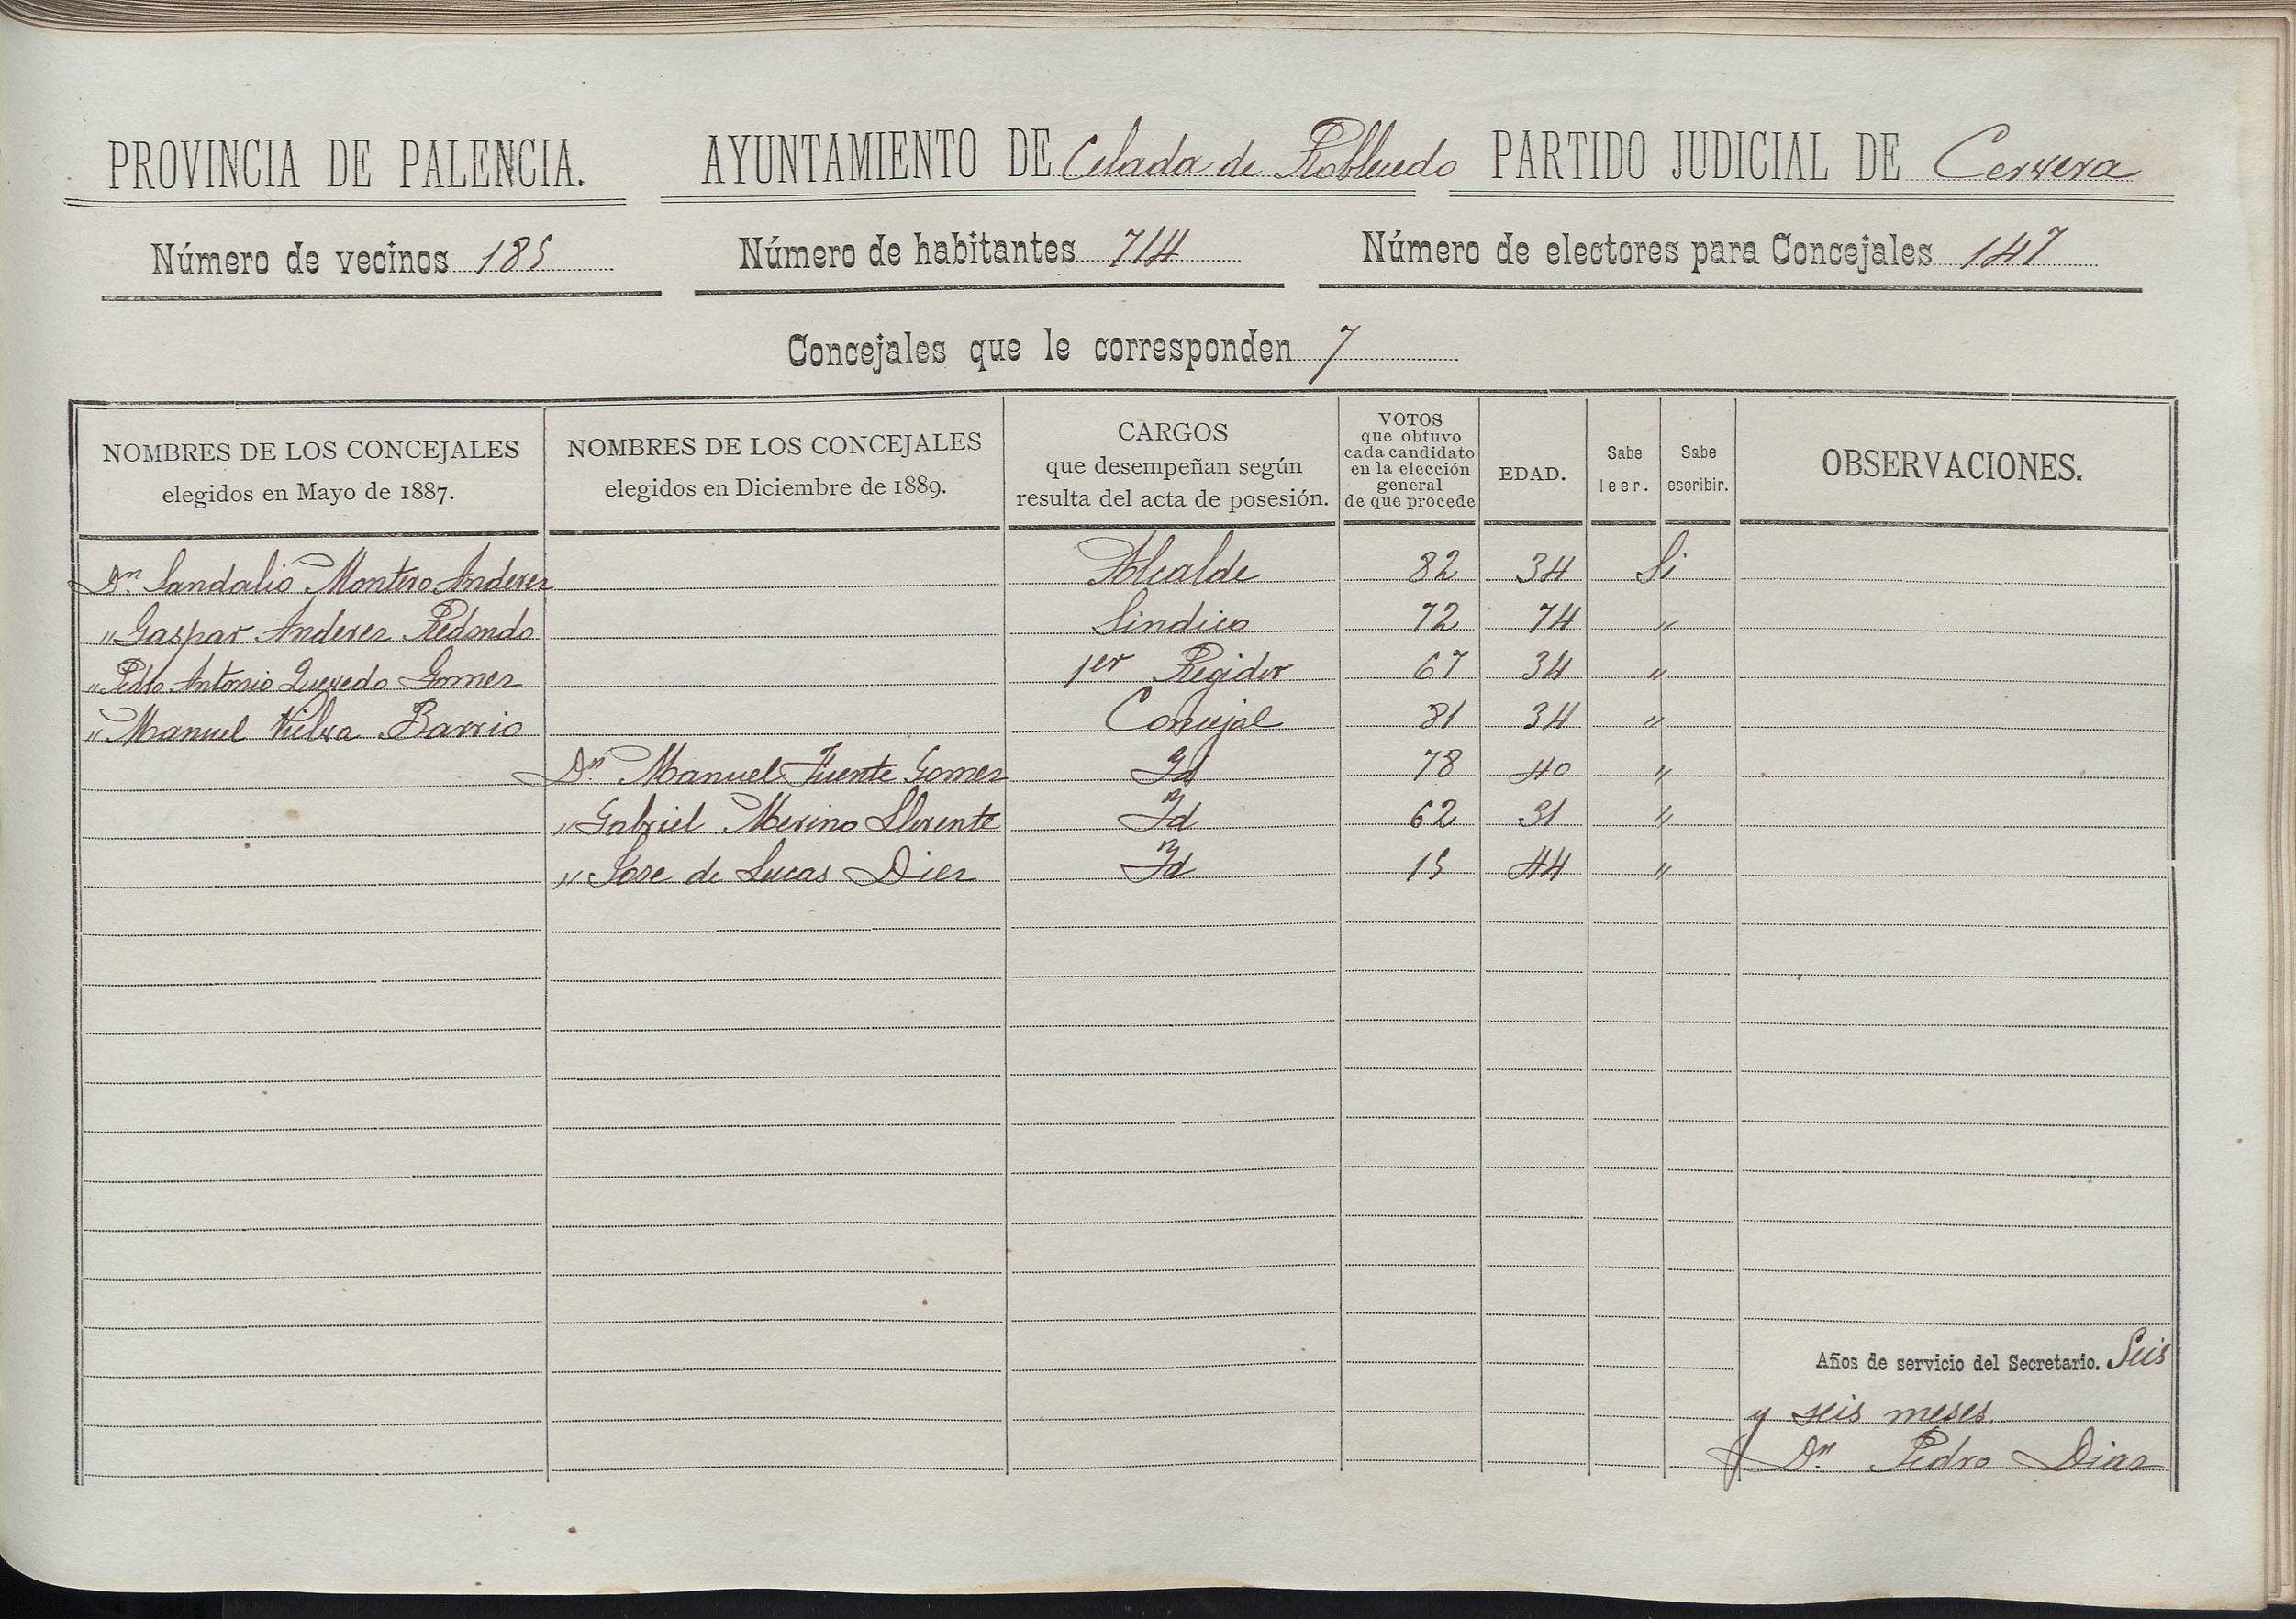 PROVINCIA DE PALENCIA. AYUNTAMIENTO DE Celada de Roblecedo PARTIDO JUDICIAL DE Cervera
Número de vecinos 185 Número de habitantes 714 Número de electores para Concejales 147
Concejales que le corresponden 7
NOMBRES DE LOS CONCEJALES
elegidos en Mayo de 1887.
NOMBRES DE LOS CONCEJALES
elegidos en Diciembre de 1889.
CARGOS
que desempeñan según
resulta del acta de posesión.
VOTOS
que obtuvo
cada candidato
en la elección
general
de que procede
EDAD.
Sabe
leer.
Sabe
escribir.
OBSERVACIONES.
Dn. Sandalio Montero Anderez Alcalde 82 34 Si
" Gaspar Anderez Redondo Sindico 72 74 "
" Pedro Antonio Quevedo Gomez 1er Regidor 67 34 "
" Manuel Barrio Concejal 81 34 "
Dn. Manuel Fuente Gomez Id 78 40 "
" Gabriel Merino Llorente Id 62 31 "
" Jose de Lucas Diez Id 15 44 "
Años de servicio del Secretario. Seis
y seis meses.
Dn. Pedro Diaz